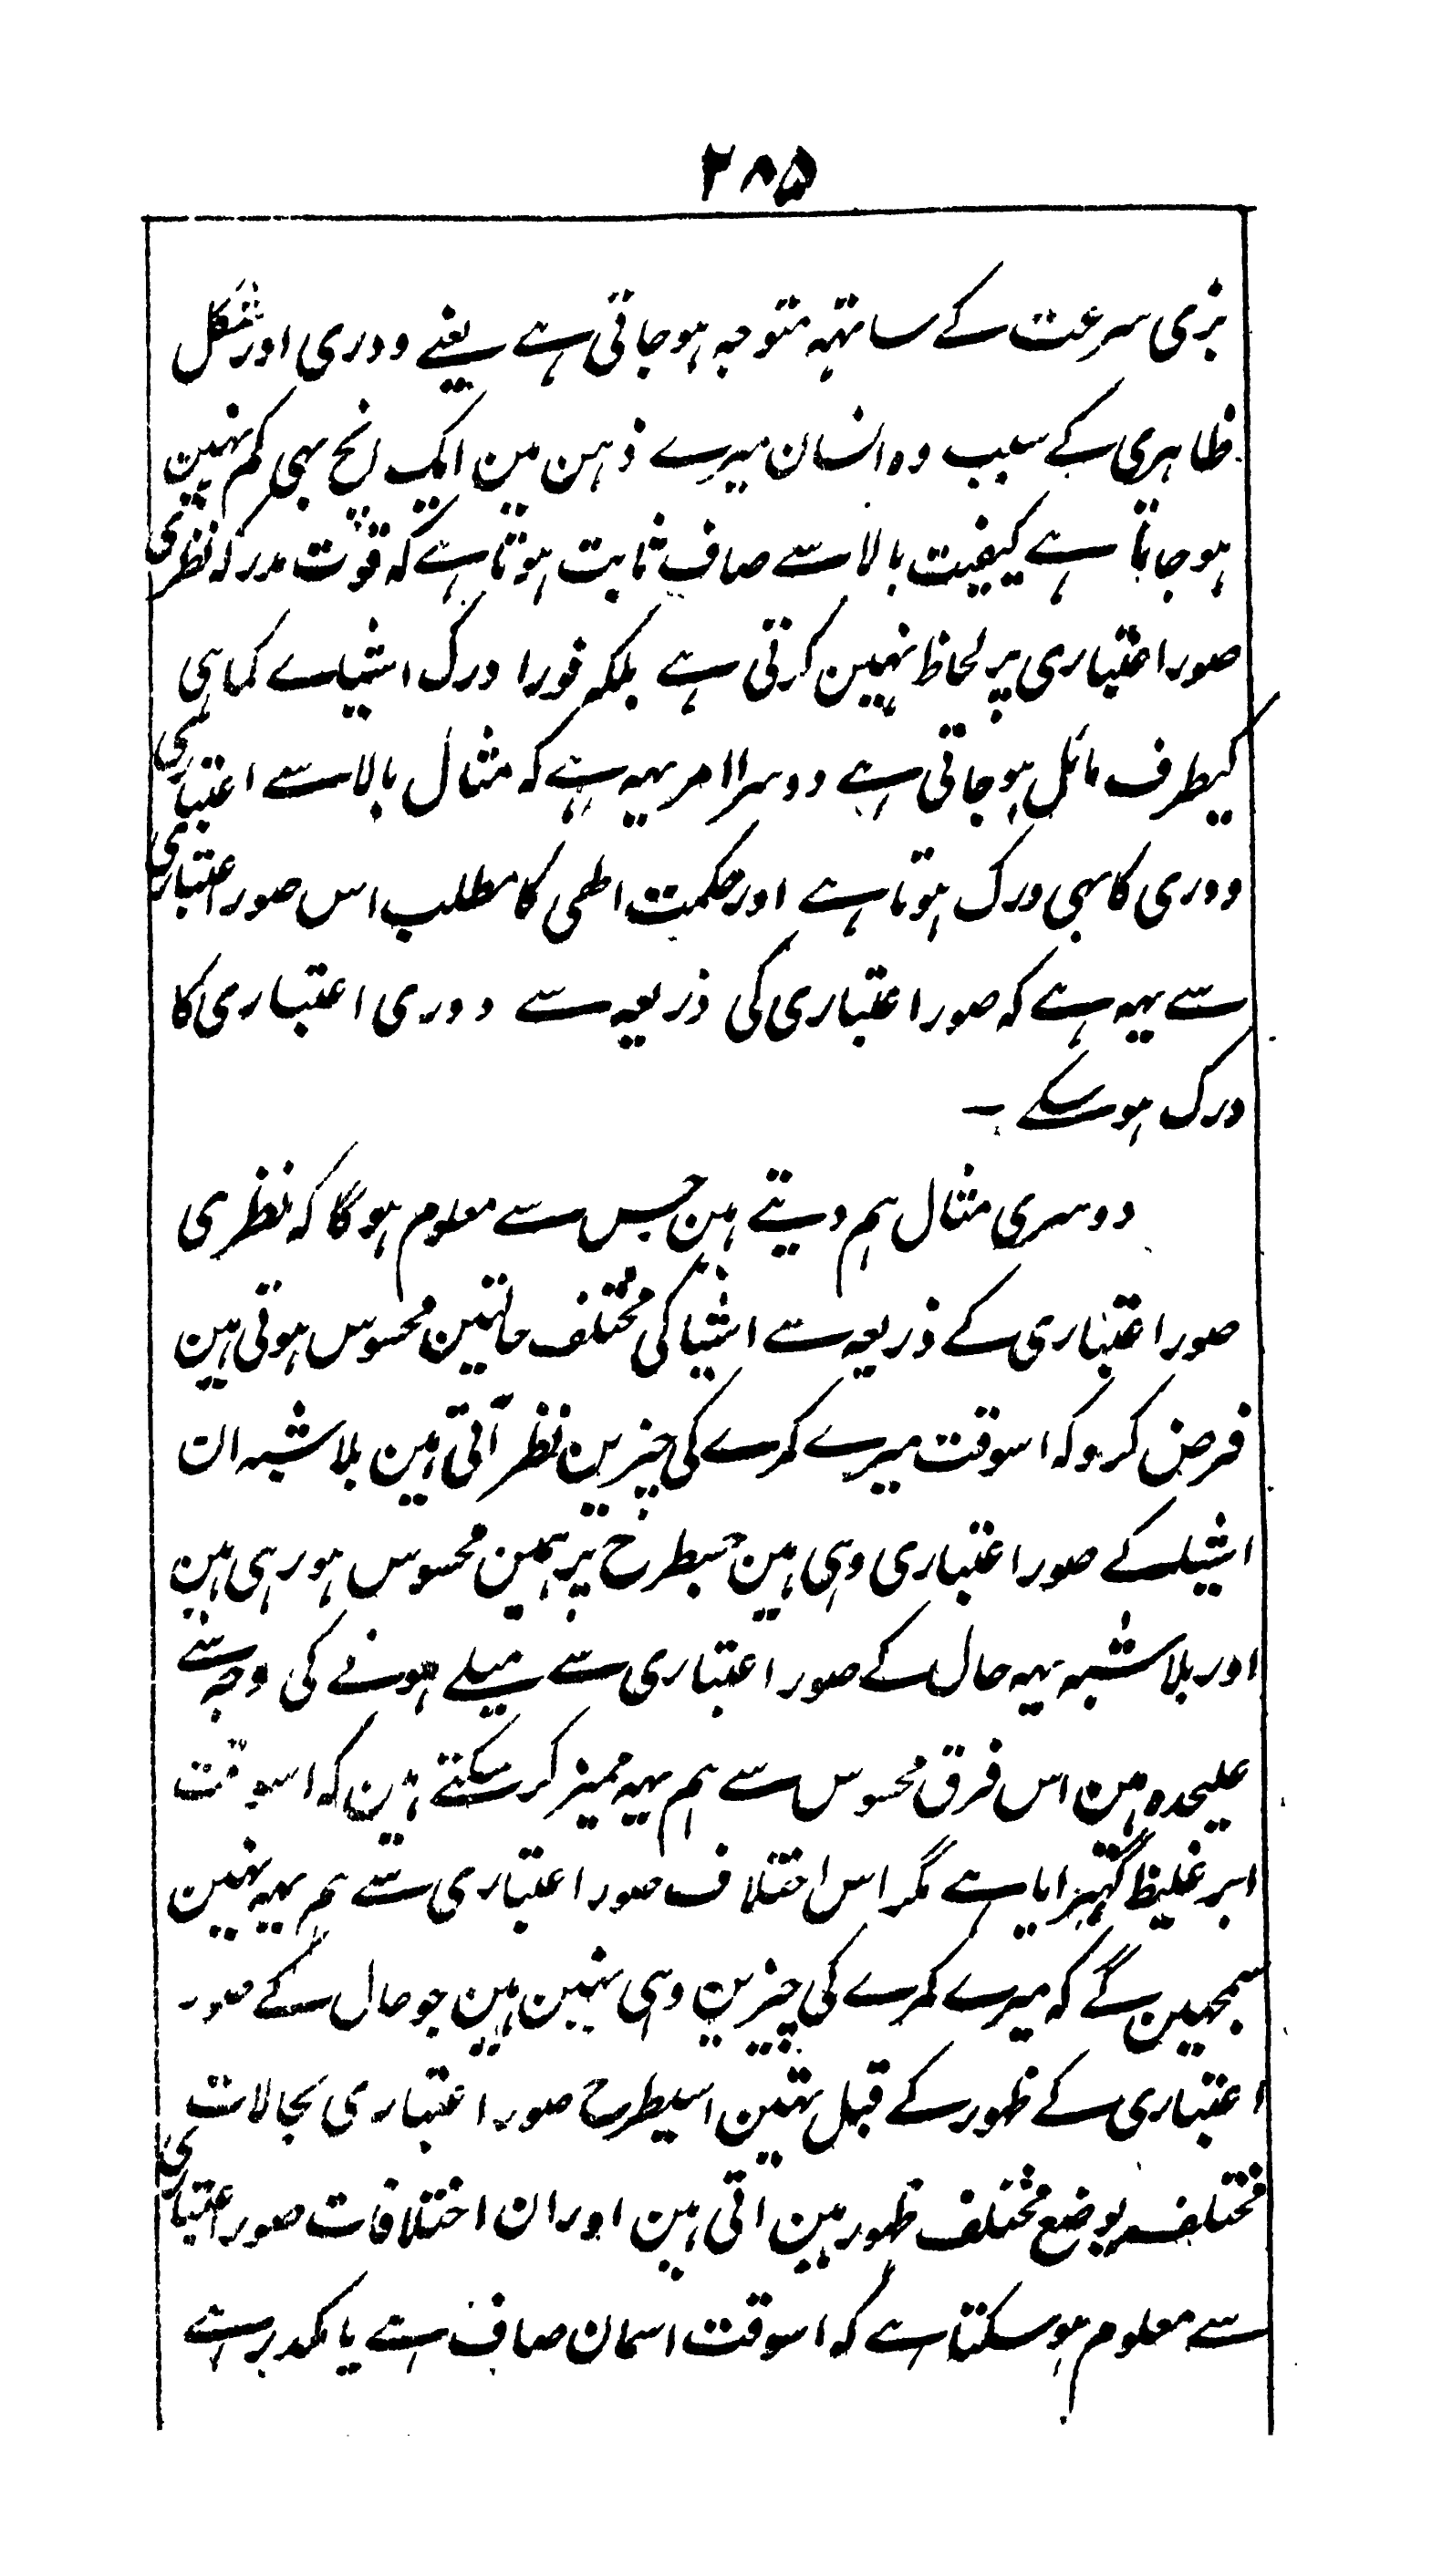 ۲۸۵
بڑی سرعت کے ساتھہ متوجہ ہو جاتی ہے یعنے دوری اور شکل
ظاہری کے سبب وہ انسان میرے ذہن مین ایک انچ بہی کم نہین
ہو جاتا ہے کیفیت بالا سے صاف ثابت ہوتا ہے کہ قوت مدرکہ نظری
صور اعتباری پر لحاظ نہین کرتی ہے بلکہ فورا درک اشیاے کماہی
کیطرف مائل ہو جاتی ہے دوسرا امر یہہ ہے کہ مثال بالا سے اعتباری
دوری کا بہی درک ہوتا ہے اور حکمت الٰہی کا مطلب اس صور اعتباری
سے یہہ ہے کہ صور اعتباری کی ذریعہ سے دوری اعتباری کا
درک ہو سکے ۔
دوسری مثال ہم دیتے ہین جس سے معلوم ہوگا کہ نظری
صور اعتباری کے ذریعہ سے اشیا کی مختلف حالتین محسوس ہوتی ہین
فرض کرو کہ اسوقت میرے کمرے کی چیزین نظر آتی ہین بلا شبہ ان
اشیاے کے صور اعتباری وہی ہین جسطرح پر ہمین محسوس ہو رہی ہین
اور بلا شبہ یہہ حال کے صور اعتباری سے پہلے ہونے کی وجہ سے
علیحدہ ہین اس فرق محسوس سے ہم یہہ ممیز کر سکتے ہین کہ اسوقت
ابر غلیظ گہر ایا ہے مگر اس اختلاف صور اعتباری سے ہم یہہ نہین
سمجہین گے کہ میرے کمرے کی چیزین وہی نہین ہین جو حال کے صور
اعتباری کے ظہور کے قبل تہین اسیطرح صور اعتباری بحالات
مختلف بوضع مختلف ظہور مین اتی ہین اور ان اختلافات صور اعتباری
سے معلوم ہو سکتا ہے کہ اسوقت اسمان صاف ہے یا مکدر ہے